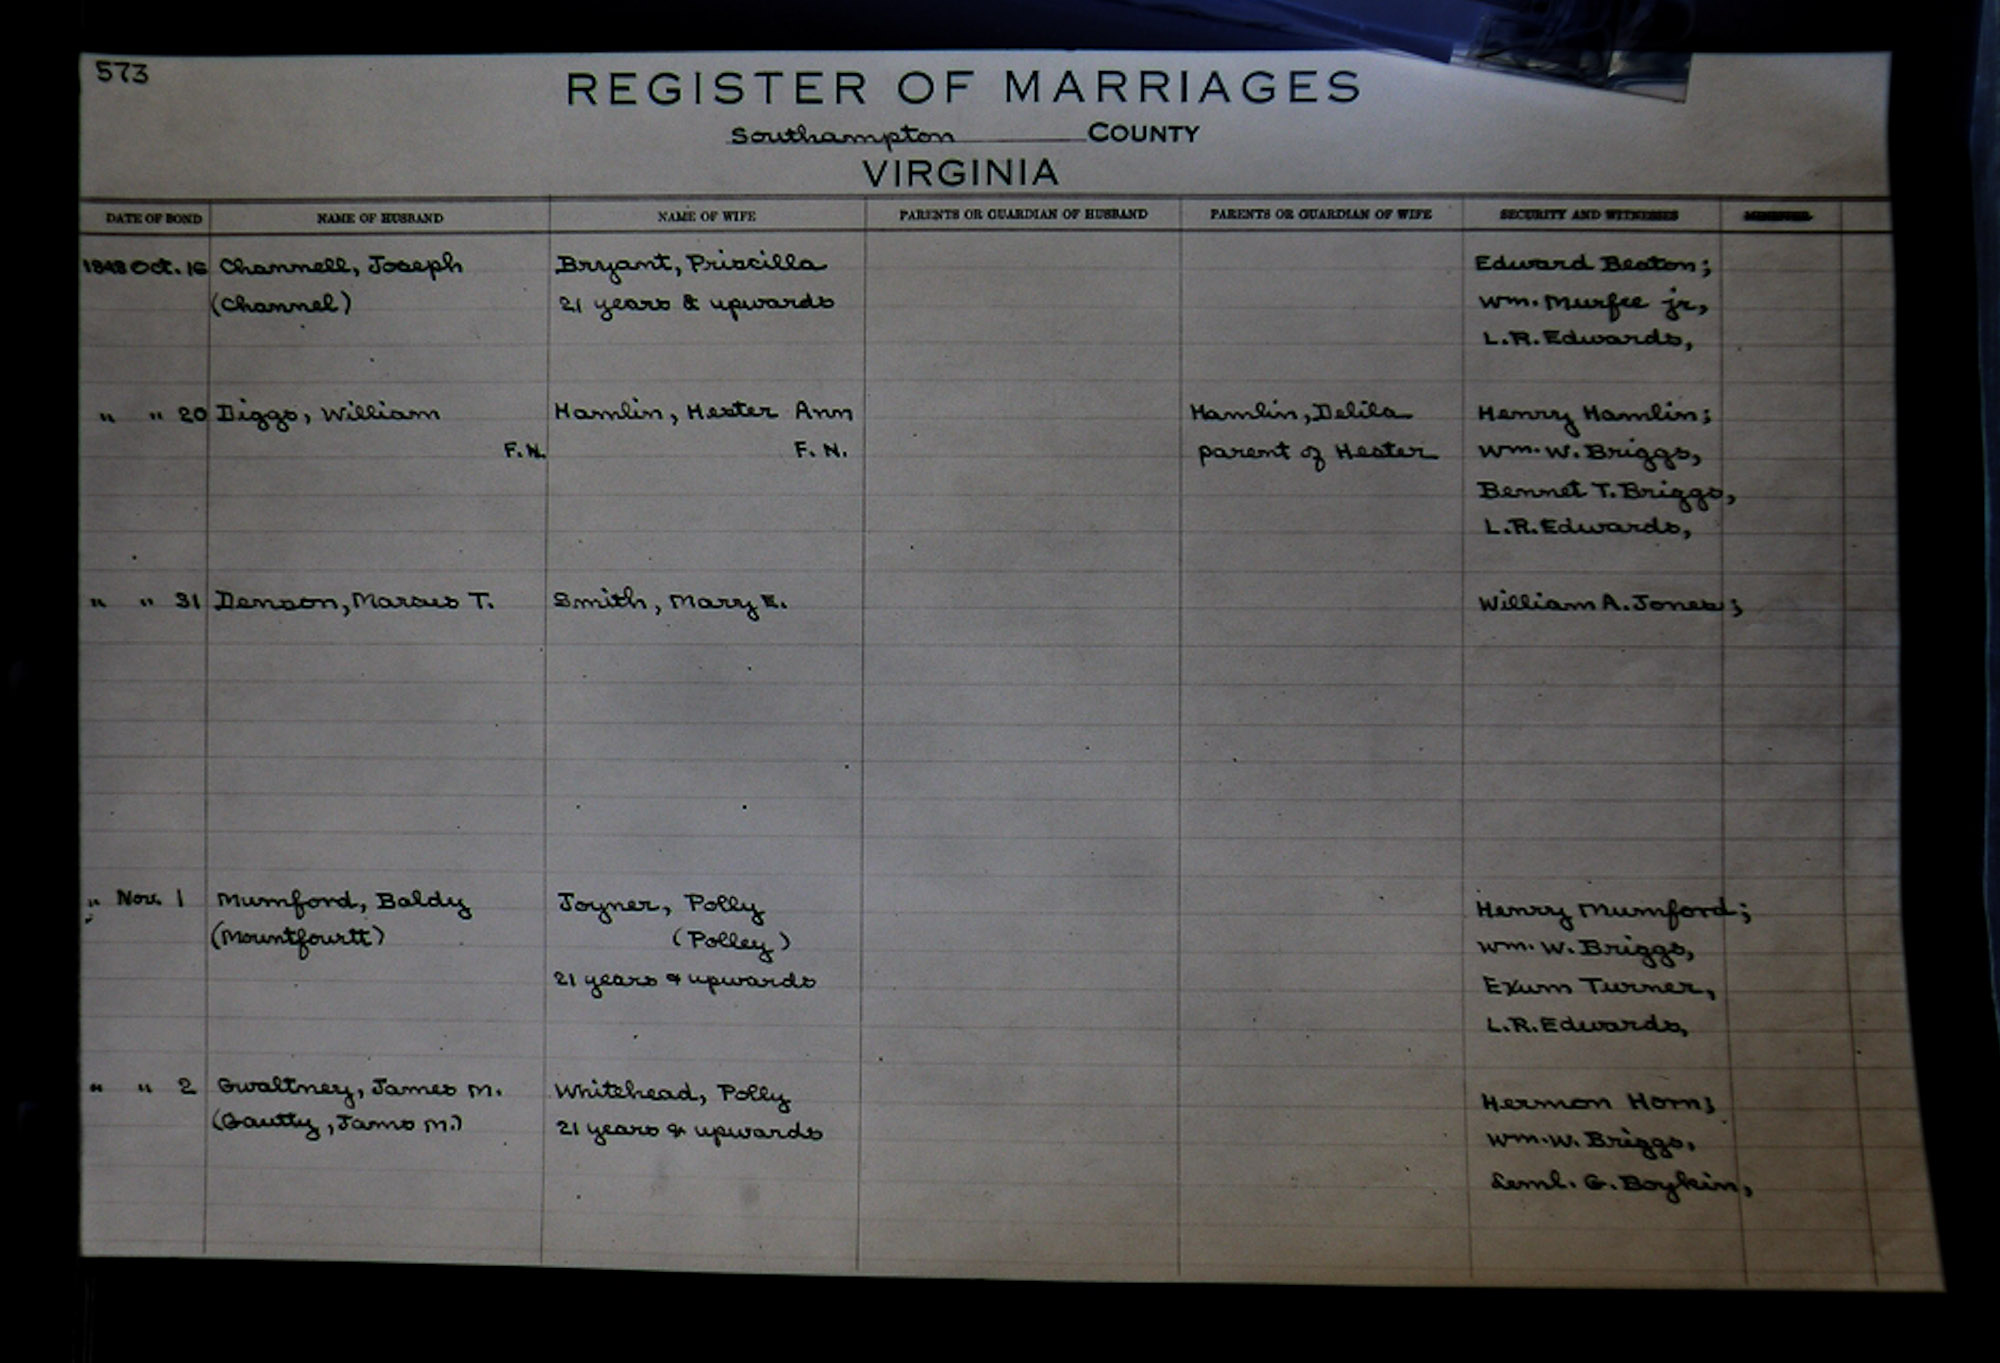 573
REGISTER OF MARRIAGES
Southampton COUNTY
VIRGINIA
DATE OF BOND NAME OF HUSBAND NAME OF WIFE PARENTS OR GUARDIAN OF HUSBAND PARENTS OR GUARDIAN OF WIFE SECURITY AND WITNESSES
1848 Oct. 16 Channell, Joseph Bryant, Priscilla Edward Beaton;
(Channel) 21 years & upwards Wm. Murfee jr,
L.R. Edwards,
" " 20 Diggs, William Hamlin, Hester Ann Hamlin, Delila Henry Hamlin;
F.N. F. N. parent of Hester Wm. W. Briggs,
Bennet T. Briggs,
L.R. Edwards,
" " 31 Denson, Marcus T. Smith, Mary E. William A. Jones;
" Nov. 1 Mumford, Baldy Joyner, Polly Henry Mumford;
(Mountfourtt) (Polley) Wm. W. Briggs,
21 years & upwards Exum Turner,
L.R. Edwards,
" " 2 Gwaltney, James M. Whitehead, Polly Hermon Horn;
(Gautly, Jams M.) 21 years & upwards Wm. W. Briggs,
Leml. G. Boykin,